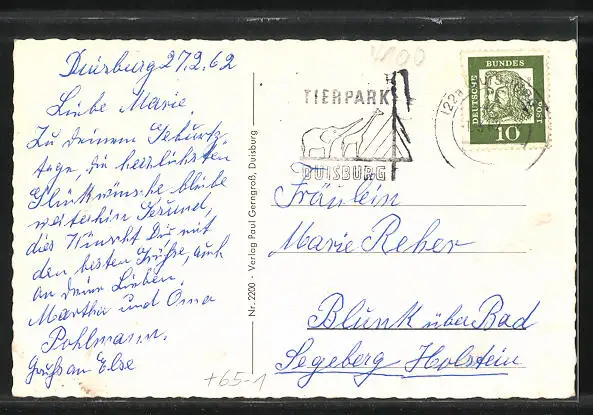 Duisburg 27.2.62
Liebe Marie,
Zu deinem Geburts-
tage, die herzlichsten
Glückwünsche bleibe
weiterhin Gesund,
dies Wünscht Dir mit
den besten Grüße, auch
an deine Lieben,
Martha und Oma
Pohlmann.
Gruß an Else
Nr. 2200 - Verlag Paul Gerngroß, Duisburg
TIERPARK
DUISBURG
DEUTSCHE BUNDESPOST
10
Fräulein
Marie Reher
Blunk über Bad
Segeberg Holstein
+65-1